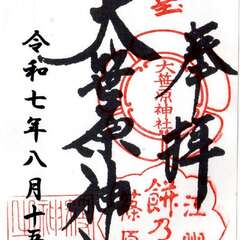 奉拝
大笹原神
令和七年八月十五
大笹原神社
江州
餅乃
篠原